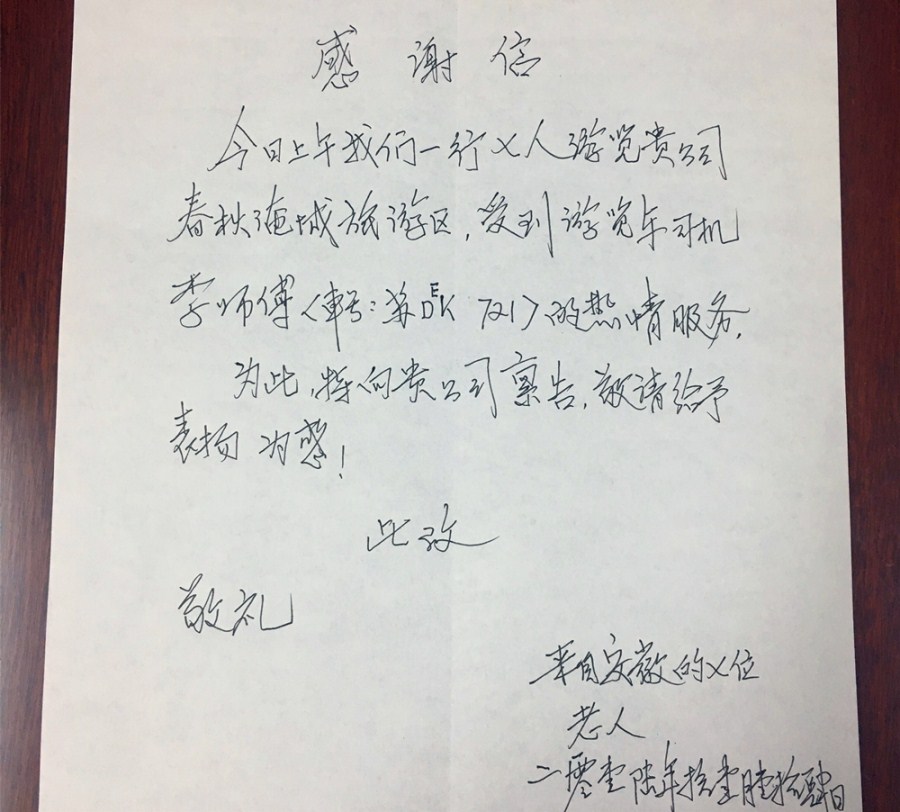 感谢信
今日上午我们一行乂人游览贵公司
春秋淹城旅游区,受到游览车司机
李师傅(車号:苏DEK 721)的热情服务.
为此,特向贵公司禀告,敬请给予
表扬为感!
此致
敬礼
来自安徽的乂位
老人
二零壹陆年拾壹月拾肆日